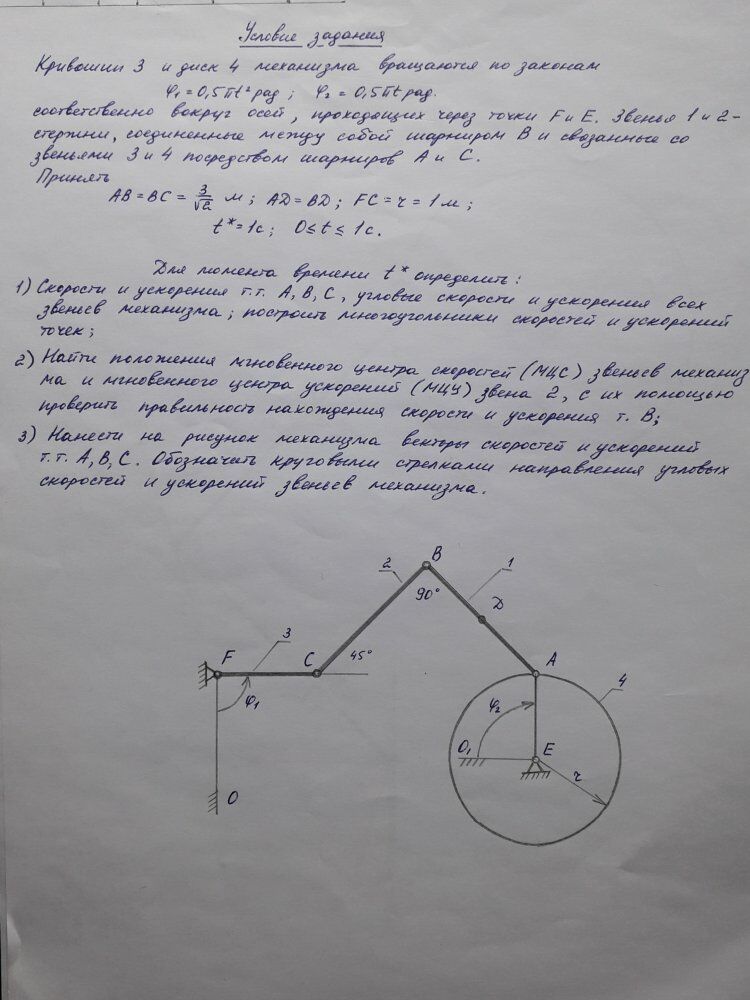 Условие задания
Кривошип 3 и диск 4 механизма вращаются по законам
φ₁ = 0,5πt² рад; φ₂ = 0,5πt рад.
соответственно вокруг осей, проходящих через точки F и E. Звенья 1 и 2-
стержни, соединенные между собой шарниром B и связанные со
звеньями 3 и 4 посредством шарниров A и C.
Принять
AB = BC = 3/√2 м; AD = BD; FC = r = 1 м;
t* = 1с; 0 ≤ t ≤ 1с.
Для момента времени t* определить:
1) Скорости и ускорения т.т. A, B, C, угловые скорости и ускорения всех
звеньев механизма; построить многоугольники скоростей и ускорений
точек;
2) Найти положения мгновенного центра скоростей (МЦС) звеньев механиз
ма и мгновенного центра ускорений (МЦУ) звена 2, с их помощью
проверить правильность нахождения скорости и ускорения т. B;
3) Нанести на рисунок механизма векторы скоростей и ускорений
т.т. A, B, C. Обозначить круговыми стрелками направления угловых
скоростей и ускорений звеньев механизма.
B
2
1
90°
D
3
F
C
45°
A
4
φ₁
φ₂
O₁
E
r
O